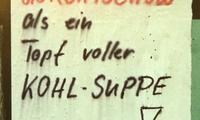 als ein
Topf voller
KOHL-SUPPE